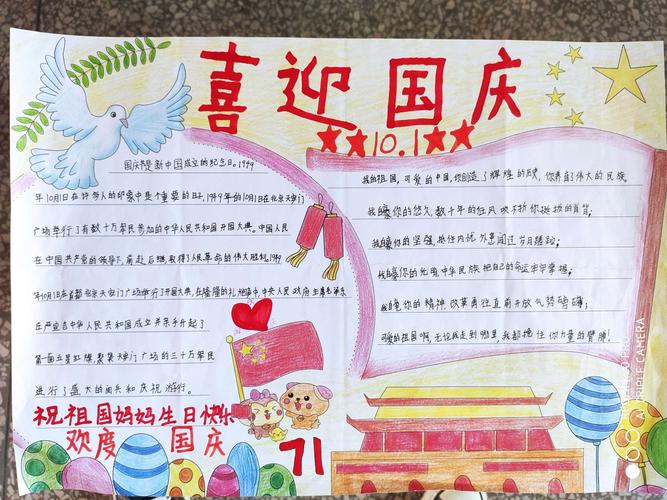 喜迎国庆
★★10.1★★
国庆节是新中国成立的纪念日。1949
年10月1日在许多人的印象中是个重要的日子,1949年的10月1日在北京天安门
广场举行了有数十万军民参加的中华人民共和国开国大典。中国人民
在中国共产党的领导下,前赴后继,取得了人民革命的伟大胜利。1949
年10月1日在首都北京天安门广场举行了开国大典,在隆隆的礼炮声中,中央人民政府主席毛泽东
庄严宣告中华人民共和国成立并亲手升起了
第一面五星红旗,聚集天安门广场的三十万军民
进行了盛大的阅兵和庆祝游行。
我的祖国,可爱的中国,你创造了辉煌的历史,你养育了伟大的民族。
我自豪你的悠久,数千年的狂风吹不折你挺拔的脊背;
我自豪你的坚强,抵住内忧外患闯过岁月蹉跎;
我自豪你的光明,中华民族把自己的命运牢牢掌握;
我自豪你的精神,改革勇往直前开放气势磅礴;
可爱的祖国啊,无论我走到哪里,我都挽住你力量的臂膀!
祝祖国妈妈生日快乐
欢度国庆
71
AI TRIPLE CAMERA